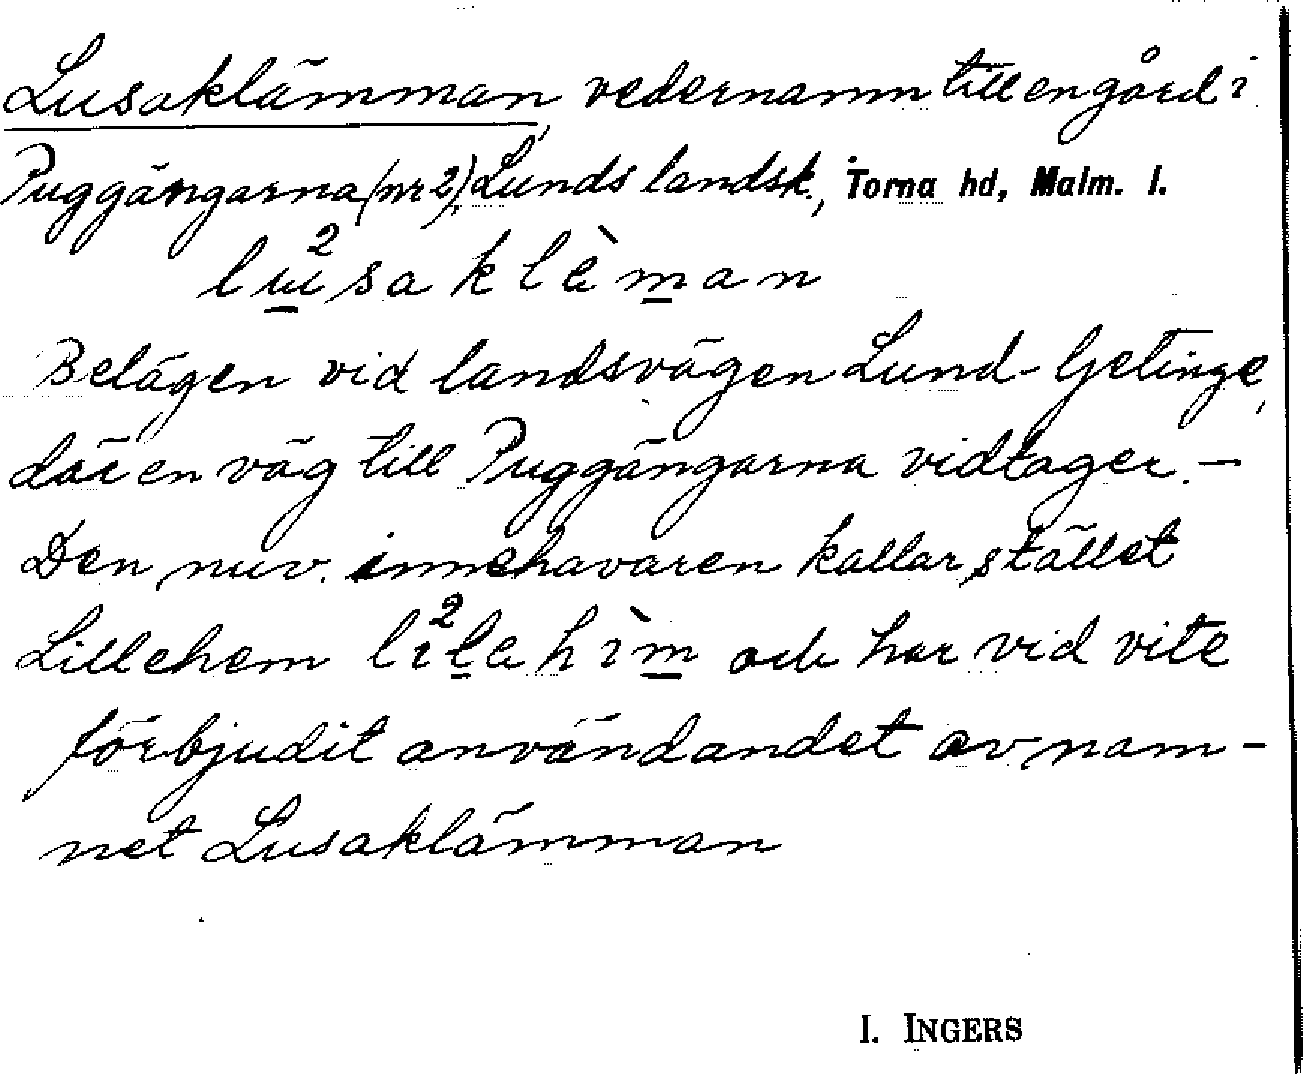 Lusaklämman, vedernamn till en gård i
Puggängarna (nr 2), Lunds landsk., Torna hd, Malm. l.
lɯ²sa klèman
Belägen vid landsvägen Lund-Getinge,
där en väg till Puggängarna vidtager. —
Den nuv. innehavaren kallar stället
Lillehem li²le hìm och har vid vite
förbjudit användandet av nam-
net Lusaklämman
I. INGERS